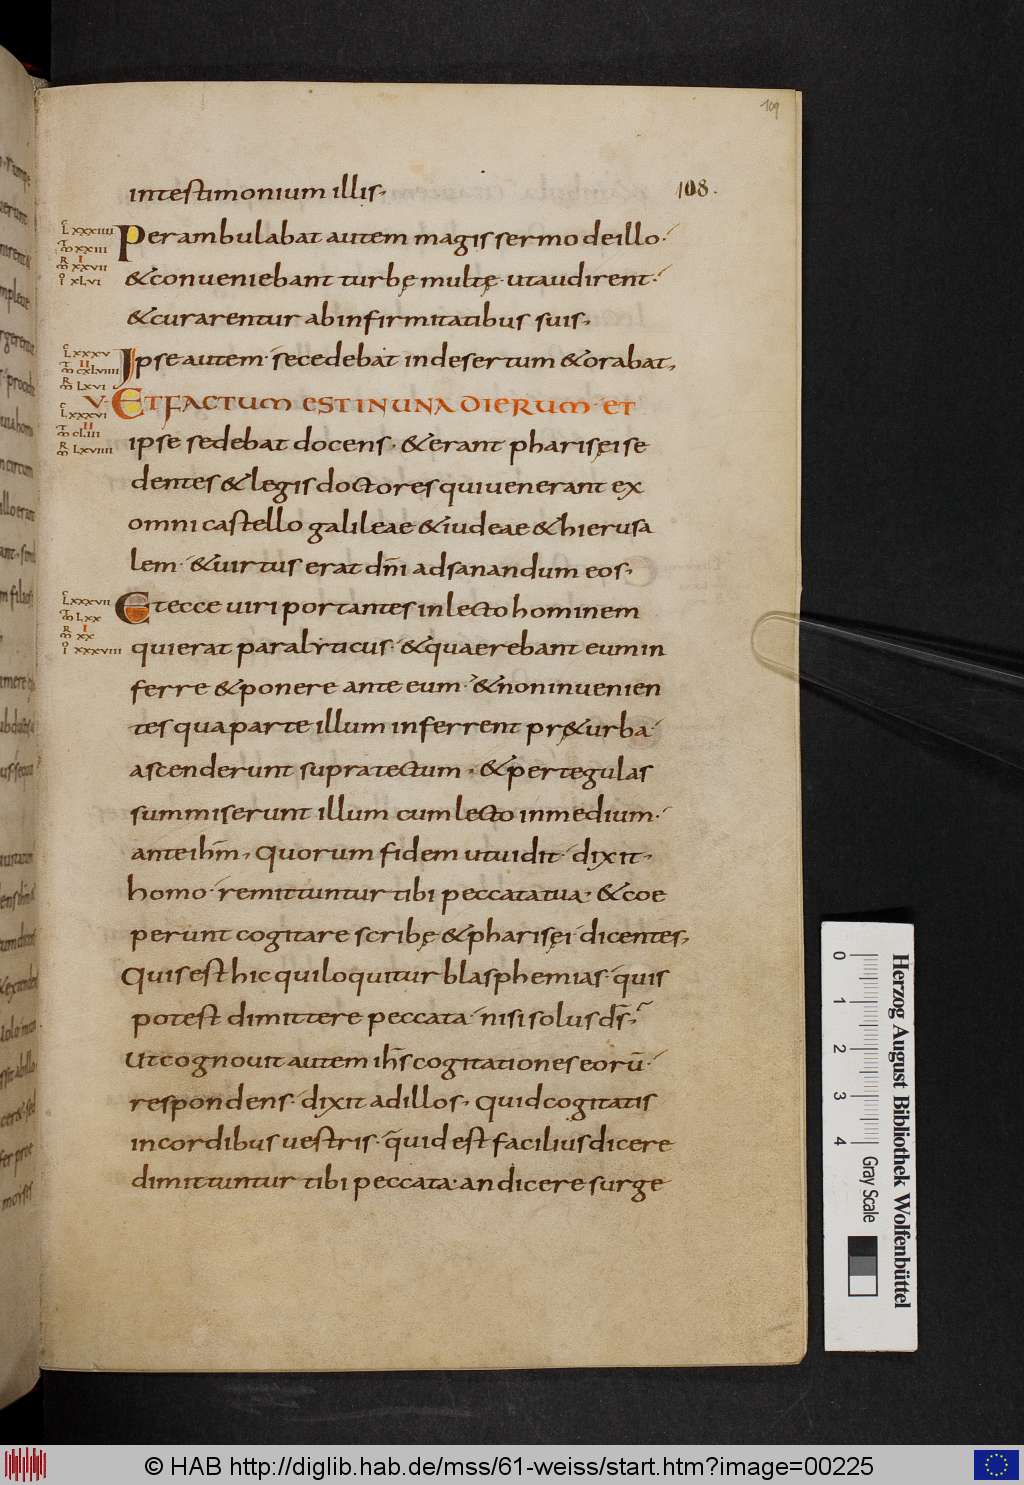 109
108.
intestimonium illis,
LXXXIIII
XXIII
I
XXVII
XLVI
Perambulabat autem magis sermo deillo·
&conueniebant turbę multę· utaudirent·
&curarentur abinfirmitatibus suis,
LXXXV
II
CXLVIIII
LXVI
Ipse autem· secedebat indesertum &orabat,
V· ET FACTUM EST IN UNA DIERUM· ET
LXXXVI
II
CLIII
LXVIIII
ipse sedebat docens· &erant pharisęi se
dentes &legis doctores quiuenerant ex
omni castello galileae &iudeae &hierusa
lem· &uirtus erat dn̄i adsanandum eos,
LXXXVII
LXX
I
XX
XXXVIII
Etecce uiri portantes inlecto hominem
quierat paralyticus· &quaerebant eumin
ferre &ponere ante eum· &noninuenien
tes qua parte illum inferrent pr&urba·
ascenderunt supratectum· &pertegulas
summiserunt illum cumlecto inmedium·
anteihm̄, Quorum fidem utuidit· dixit,
homo· remittuntur tibi peccatatua· &coe
perunt cogitare scribę &pharisęi· dicentes,
Quis est hic quiloquitur blasphemias· quis
potest dimittere peccata· nisi solus ds̄,
Ut cognouit autem ihs̄ cogitationes eorū·
respondens· dixit adillos, quidcogitatis
incordibus uestris· quid est facilius dicere
dimittuntur tibi peccata· an dicere surge
0 1 2 3 4
Gray Scale
Herzog August Bibliothek Wolfenbüttel
© HAB http://diglib.hab.de/mss/61-weiss/start.htm?image=00225